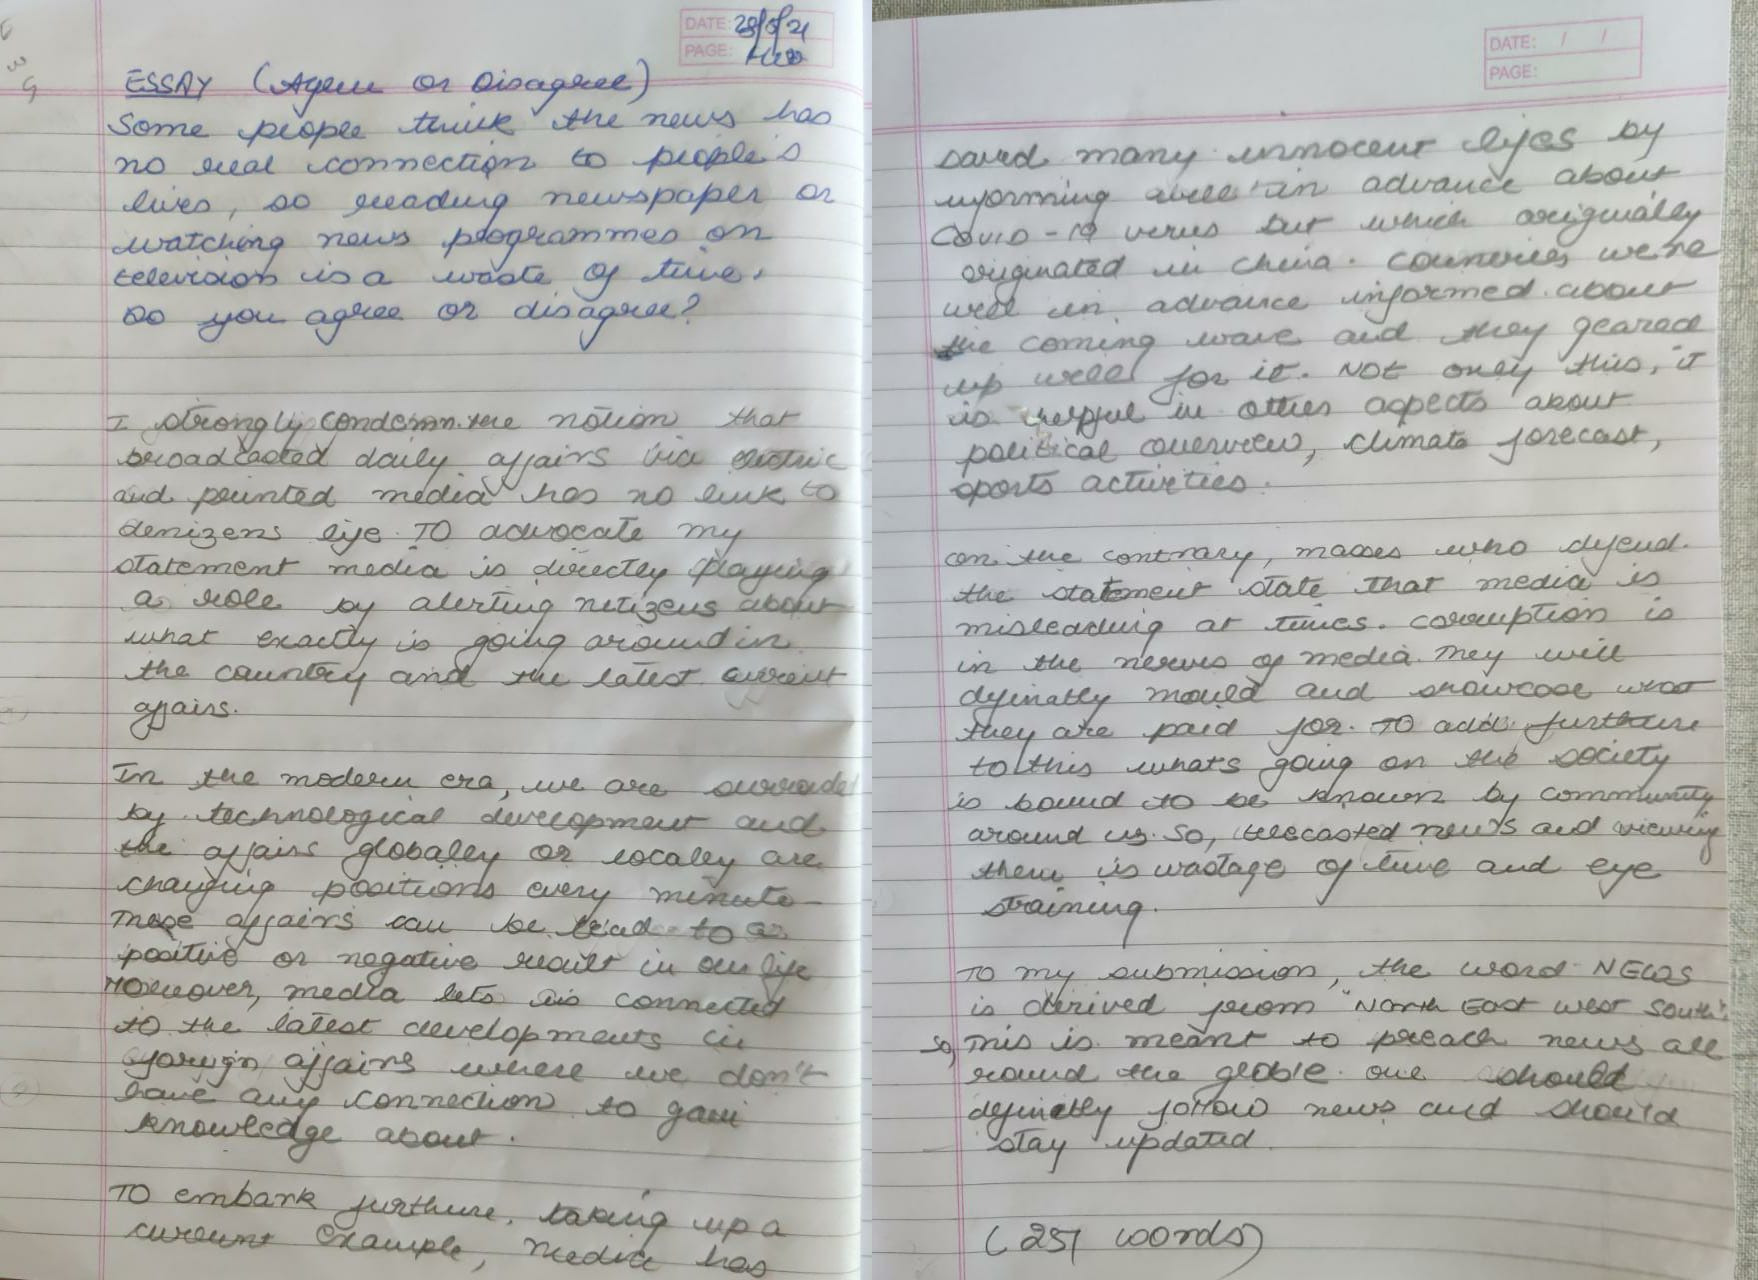 DATE: 28/5/21
PAGE:
ESSAY (Agree or Disagree)
Some people think the news has
no real connection to people's
lives, so reading newspaper or
watching news programmes on
television is a waste of time.
Do you agree or disagree?
I strongly condemn the notion that
broadcasted daily affairs via electric
and printed media has no link to
denizens life. To advocate my
statement media is directly playing
a role by alerting netizens about
what exactly is going around in
the country and the latest current
affairs.
In the modern era, we are
by technological development and
the affairs globally or locally are
changing positions every minute
These affairs can be lead to a
positive or negative result in our life
Moreover, media lets us connected
to the latest developments in
foreign affairs where we don't
have any connection to gain
knowledge about.
To embark further, taking up a
current example, media has
DATE: / /
PAGE:
saved many innocent lifes by
informing well in advance about
Covid-19 virus but which originally
originated in China. Countries were
well in advance informed about
the coming wave and they geared
up well for it. Not only this, it
is helpful in other aspects about
political overview, climate forecast,
sports activities.
On the contrary, masses who defend
the statement state that media is
misleading at times. Corruption is
in the nerves of media. They will
definatly mould and showcase what
they are paid for. To add further
to this whats going on the society
is bound to be known by community
around us. So, telecasted news and viewing
them is wastage of time and eye
straining.
To my submission, the word NEWS
is derived from "North East West South".
So, This is meant to preach news all
round the globle. One should
definatly follow news and should
stay updated.
(251 words)